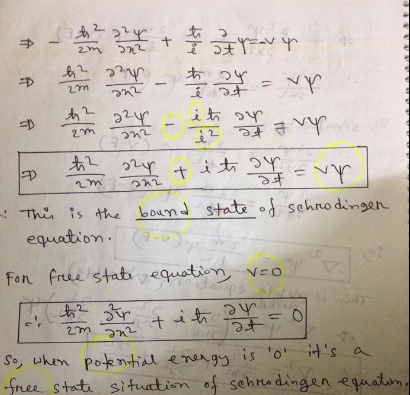 ⇒ - ħ²/2m ∂²ψ/∂x² + ħ/i ∂/∂t ψ = -vψ
⇒ ħ²/2m ∂²ψ/∂x² - ħ/i ∂ψ/∂t = vψ
⇒ ħ²/2m ∂²ψ/∂x² - iħ/i² ∂ψ/∂t = vψ
⇒ ħ²/2m ∂²ψ/∂x² + iħ ∂ψ/∂t = vψ
∴ This is the bound state of schrodinger
equation.
For free state equation, v=0
∴ ħ²/2m ∂²ψ/∂x² + iħ ∂ψ/∂t = 0
So, when potential energy is '0' it's a
free state situation of schrodinger equation.